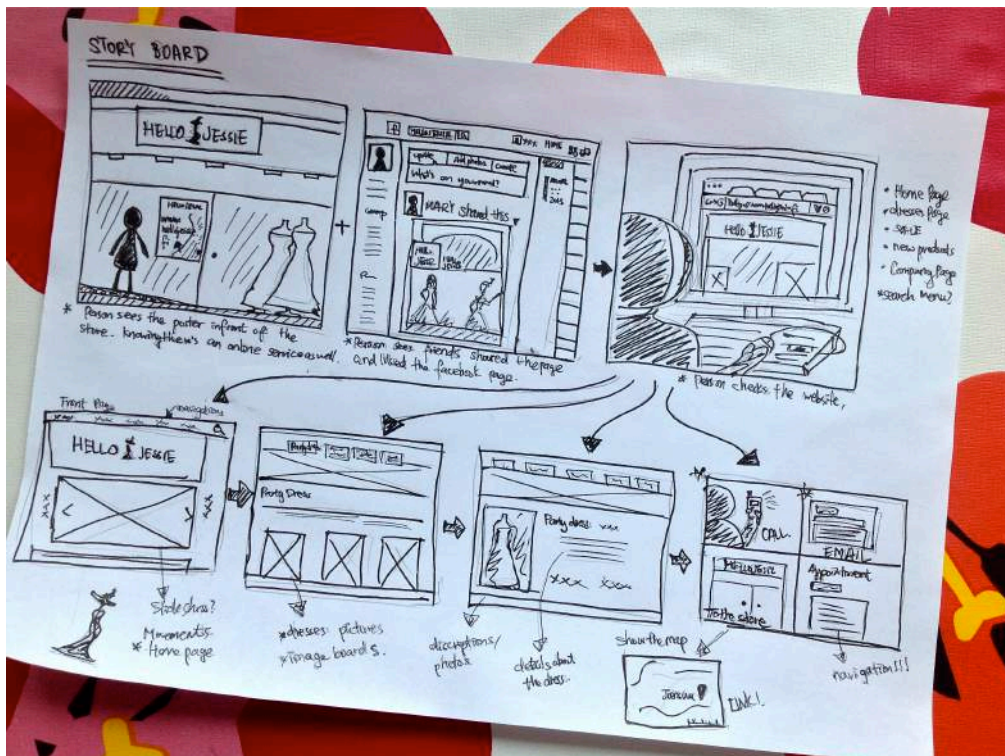 STORY BOARD
HELLO JESSIE
* Person sees the poster infront of the
store. Knowing there's an online service as well.
+
update Add photos
What's on your mind?
HOME
MARY shared this
HELLO
JESSIE
* Person sees friends shared the page
and liked the facebook page.
HELLO JESSIE
* Person checks the website,
* Home Page
* dresses Page
* SALE
* new products
* Company Page
* search Menu?
Front Page
navigations
HELLO JESSIE
< >
xxx
xxx
Slide show?
* Home page
Party Dress
* dresses pictures
* image boards.
Party dress xxx
xxx xxx
discriptions/
photos
details about
the dress..
CALL.
EMAIL
HELLO JESSIE
To the store
Appointment
show the map
LINK!
navigation!!!